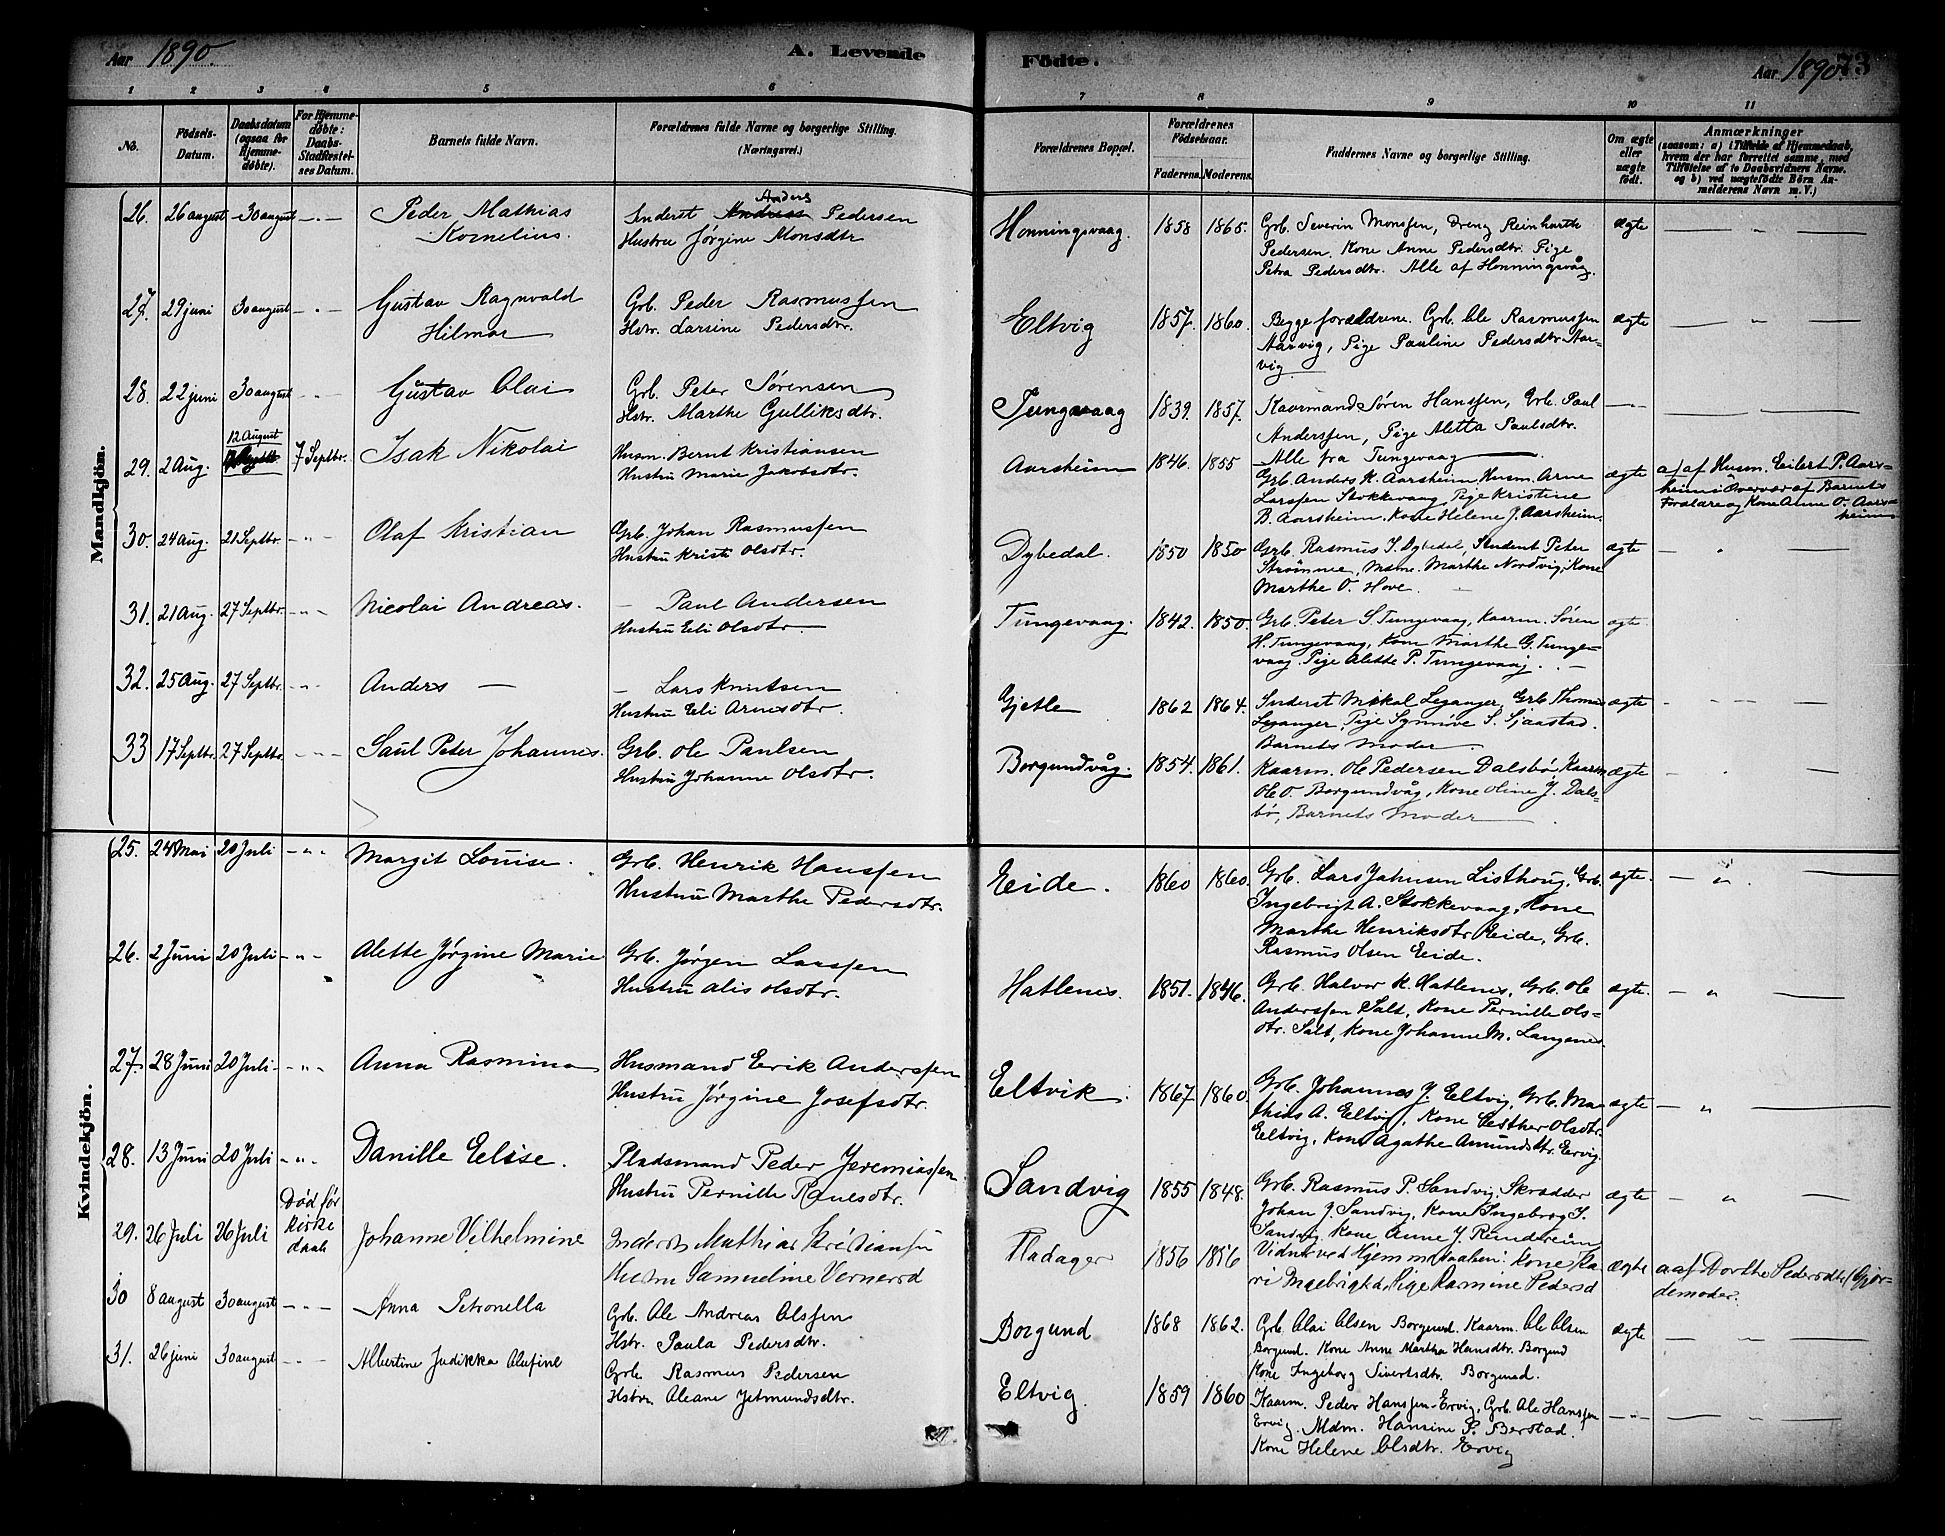 Aar 1890.
A. Levende Födte.
Aar 1890. 73
1 2 3 4 5 6 7 8 9 10 11
No.
Födsels-Datum.
Daabsdatum (ogsaa for Hjemme-döbte).
For Hjemme-döbte: Daabs-Stadfæstel-ses Datum.
Barnets fulde Navn.
Forældrenes fulde Navne og borgerlige Stilling.
(Næringsvei.)
Forældrenes Bopæl.
Forældrenes Födselsaar.
Faderens. Moderens.
Faddernes Navne og borgerlige Stilling.
Om ægte eller uægte födt.
Anmærkninger
(saasom: a) i Tilfælde af Hjemmedaab, hvem der har forrettet samme, med Tilföielse af to Daabsvidners Navne, og b) ved uægtefödte Börn An-melderens Navn m. V.)
Mandkjön.
26. 26 august 30 august - " - Peder Mathias Kornelius.
Inderst Anders Pedersen
Hustru Jørgine Monsdtr
Honningsvaag. 1858 1865.
Grb. Severin Monssen, Dreng Reinharth
Pedersen. Kone Anne Pedersdtr. Pige
Petra Pedersdtr. Alle af Honningsvåg.
Ægte — " —
27. 29 juni 30 august - " - Gustav Ragnvald Hilmar
Grb. Peder Rasmussen
Hstr. Larsine Pedersdtr.
Eltvig 1857. 1860.
Begge forældrene. Grb. Ole Rasmussen
Aarvig, Pige Pauline Pedersdtr Aar-
vig
ægte — " —
28. 22 juni 30 august - " - Gustav Olai
Grb. Peter Sørensen
Hstr. Marthe Gulliksdtr.
Tungevaag 1839. 1857.
Kaarmand Søren Hanssen, Grb. Paul
Anderssen, Pige Aletta Paulsdtr.
Alle fra Tungevaag
— " —
29. 2 Aug. 12 August 7 Septbr. Isak Nikolai
Husm. Bernt Kristiansen
Hustru Marie Jakobsdtr.
Aarsheim 1846. 1855
Grb. Anders K. Aarsheim Husm. Arne
Larssen Stokkevaag, Pige Kristine
B. Aarsheim. Kone Helene J. Aarsheim.
ægte
a) af Husm. Eilert P. Aars-
heim i Overvær af Barnets
Forældre og Kone Anne O. Aars-
heim
30. 24 Aug. 21 Septbr. - " - Olaf Kristian
Grb. Johan Rasmussen
Hustru Kristi Olsdtr.
Dybedal. 1850 1850
Grb. Rasmus J. Dybedal, Student Peter
Strømme, Mdme. Marthe Nordvig, Kone
Marthe O. Hove.
ægte — " —
31. 21 Aug. 27 Septbr. - " - Nicolai Andreas.
— Paul Andersen
Hustru Eli Olsdtr.
Tungevaag. 1842. 1850.
Grb. Peter S. Tungevaag, Kaarm. Søren
H. Tungevaag, Kone Marthe G. Tunge-
vaag. Pige Alette P. Tungevaag.
ægte
32. 25 Aug. 27 Septbr. - " - Anders —
— Lars Knutsen
Hustru Eli Arnesdtr.
Gjetle 1862 1864.
Inderst Mikal Leganger, Grb. Thomas
Leganger, Pige Synnøve S. Sjaastad.
Barnets Moder
ægte - - - —
33 17 Septbr. 27 Septbr. - " - Saul Peter Johannes.
Grb. Ole Paulsen
Hustru Johanne Olsdtr.
Borgundvåg. 1854. 1861.
Kaarm. Ole Pedersen Dalsbø, Kaarm
Ole O. Borgundvåg, Kone Oline J. Dals-
bø, Barnets Moder
ægte - " —
Kvindekjön.
25. 24 Mai 20 Juli - " - Margit Louise.
Grb. Henrik Hanssen
Hustru Marthe Pedersdtr.
Eide. 1860 1860.
Grb. Lars Jahnsen Listhoug, Grb.
Ingebrigt A. Stokkevaag, Kone
Marthe Henriksdtr Eide, Grb.
Rasmus Olsen Eide.
ægte. — " —
26. 2 Juni 20 Juli - " - Alette Jørgine Marie
Grb. Jørgen Larssen
Hustru Alis Olsdtr.
Hatlenes. 1851. 1846.
Grb. Halvor K. Hatlenes, Grb. Ole
Anderssen Salt, Kone Pernille Ols-
dtr. Salt, Kone Johanne M. Langenes.
ægte. — " —
27. 28 Juni 20 Juli - " - Anna Rasmina
Husmand Erik Anderssen
Hustru Jørgine Josefsdtr.
Eltvik. 1867 1860
Grb. Johannes J. Eltvig, Grb. Ma-
thias A. Eltvig, Kone Esther Olsdtr.
Eltvig, Kone Agathe Amundsdtr. Ervig.
ægte — " —
28. 13 Juni 20 Juli - " - Danille Elise.
Pladsmand Peder Jeremiassen
Hustru Pernille Ranesdtr.
Sandvig 1855 1848.
Grb. Rasmus P. Sandvig, Skrædder
Johan J. Sandvig, Kone Ingeborg S.
Sandvig Kone Anne J. Remdereim
ægte — " —
29. 26 Juli 26 Juli Død før kirke daab Johanne Vilhelmine
Inderst Mathias Kristiansen
Hustru Samueline Vernersd
Fladager 1856 1856
Vidner ved Hjemmedaaben: Kone Ka-
ri Ingebrigtd, Pige Rasmine Pedersd
ægte
a af Dorthe Pedersdtr Gjor-
demoder.
30 8 august 30 august - - - Anna Petronella
Grb. Ole Andreas Olssen
Hstr. Paula Pedersdtr.
Borgund 1868 1862.
Grb. Olai Olsen Borgund. Kaarm. Ole Olsen
Borgund. Kone Anne Martha Hansdtr. Borgund
Kone Ingeborg Sivertsdtr. Borgund.
Ægte — " —
31. 26 juni 30 august - - - Albertine Judikka Olufine
Grb. Rasmus Pedersen
Hstr. Oleane Jetmundsdtr.
Eltvig. 1859 1860
Kaarm. Peder Hanssen Ervig, Grb. Ole Hanssen
Ervig. Mdm. Hansine P. Berstad.
Kone Helene Olsdtr. Ervig
— " — — " —